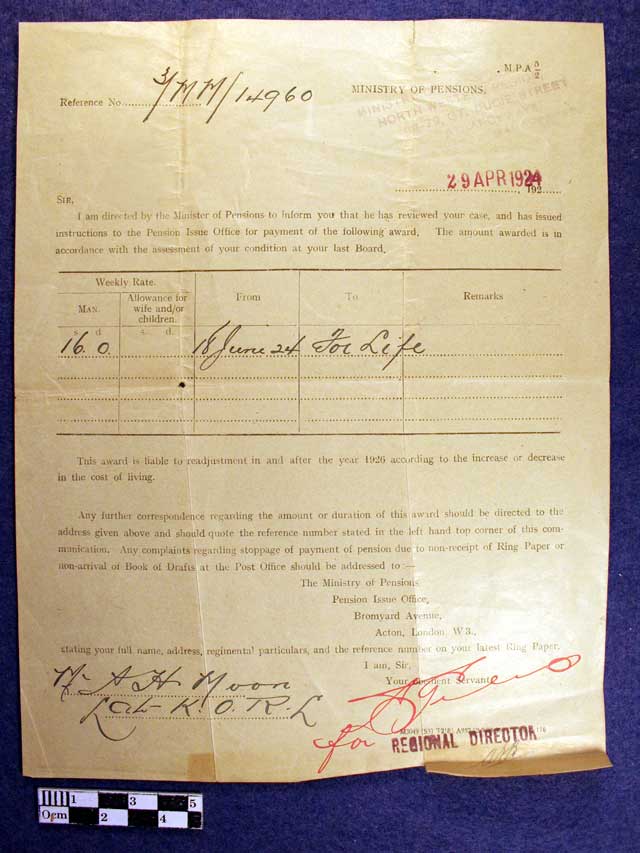 M.P.A 5/2
Reference No. 3/MM/14960
MINISTRY OF PENSIONS,
MINISTRY
NORTH WE
STREET
29 APR 1924
192
SIR,
I am directed by the Minister of Pensions to inform you that he has reviewed your case, and has issued
instructions to the Pension Issue Office for payment of the following award. The amount awarded is in
accordance with the assessment of your condition at your last Board.
Weekly Rate.
MAN.
Allowance for wife and/or children.
From
To
Remarks
s. d.
s. d.
16. 0. 18 June 24 For Life
This award is liable to readjustment in and after the year 1926 according to the increase or decrease
in the cost of living.
Any further correspondence regarding the amount or duration of this award should be directed to the
address given above and should quote the reference number stated in the left hand top corner of this com-
munication. Any complaints regarding stoppage of payment of pension due to non-receipt of Ring Paper or
non-arrival of Book of Drafts at the Post Office should be addressed to :—
The Ministry of Pensions,
Pension Issue Office,
Bromyard Avenue,
Acton, London, W3.,
stating your full name, address, regimental particulars, and the reference number on your latest Ring Paper.
I am, Sir,
Your obedient Servant
Mr A H Moon
K. O. R. L
for REGIONAL DIRECTOR
1
3
5
0cm
2
4